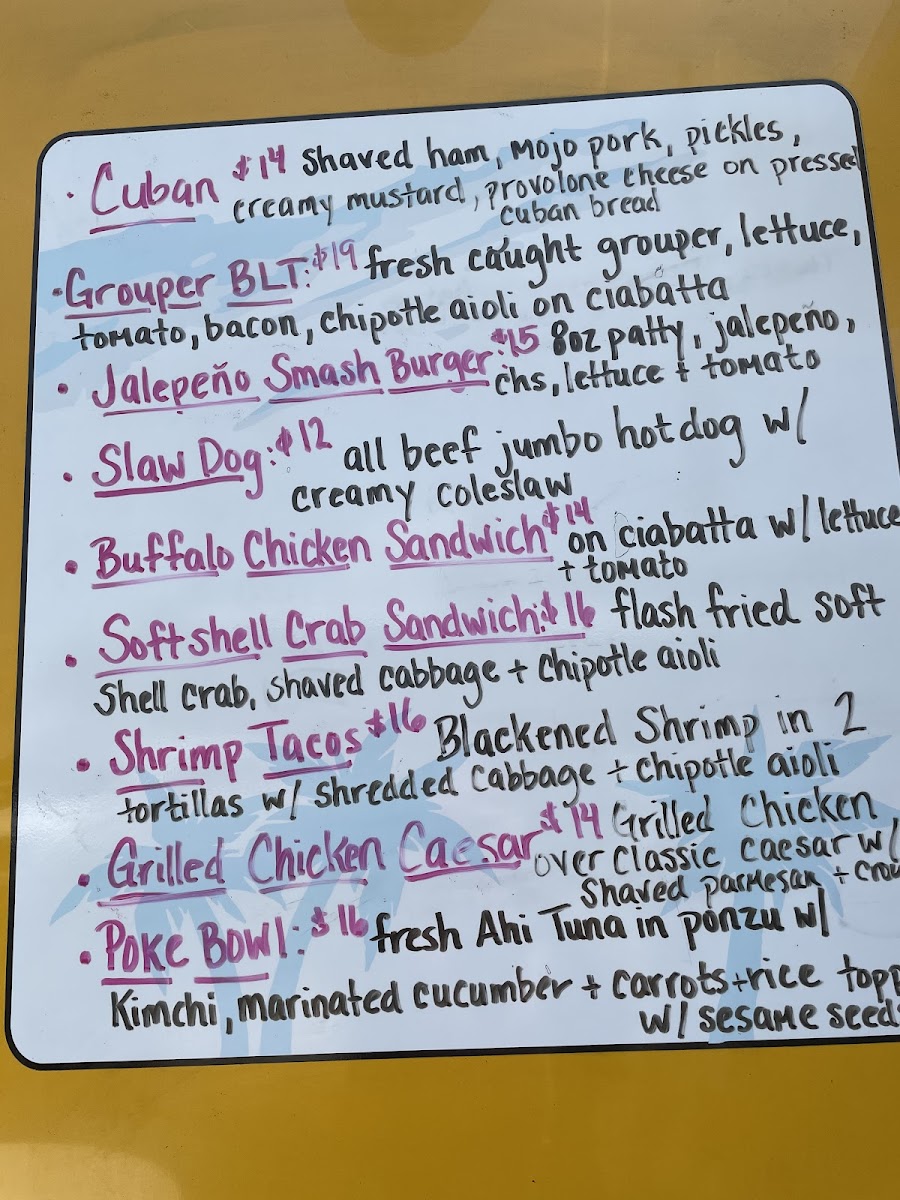 • Cuban $14 Shaved ham, Mojo pork, pickles,
creamy mustard, provolone cheese on pressed
cuban bread
• Grouper BLT: $19 fresh caught grouper, lettuce,
tomato, bacon, chipotle aioli on ciabatta
• Jalepeño Smash Burger: $15 8oz patty, jalepeño,
chs, lettuce + tomato
• Slaw Dog: $12 all beef jumbo hotdog w/
creamy coleslaw
• Buffalo Chicken Sandwich $14 on ciabatta w/ lettuce
+ tomato
• Softshell Crab Sandwich: $16 flash fried soft
Shell crab, shaved cabbage + chipotle aioli
• Shrimp Tacos $16 Blackened Shrimp in 2
tortillas w/ shredded cabbage + chipotle aioli
• Grilled Chicken Caesar $14 Grilled Chicken
over classic caesar w/
Shaved parmesan + crou
• Poke Bowl: $16 fresh Ahi Tuna in ponzu w/
Kimchi, marinated cucumber + carrots + rice topp
w/ sesame seeds